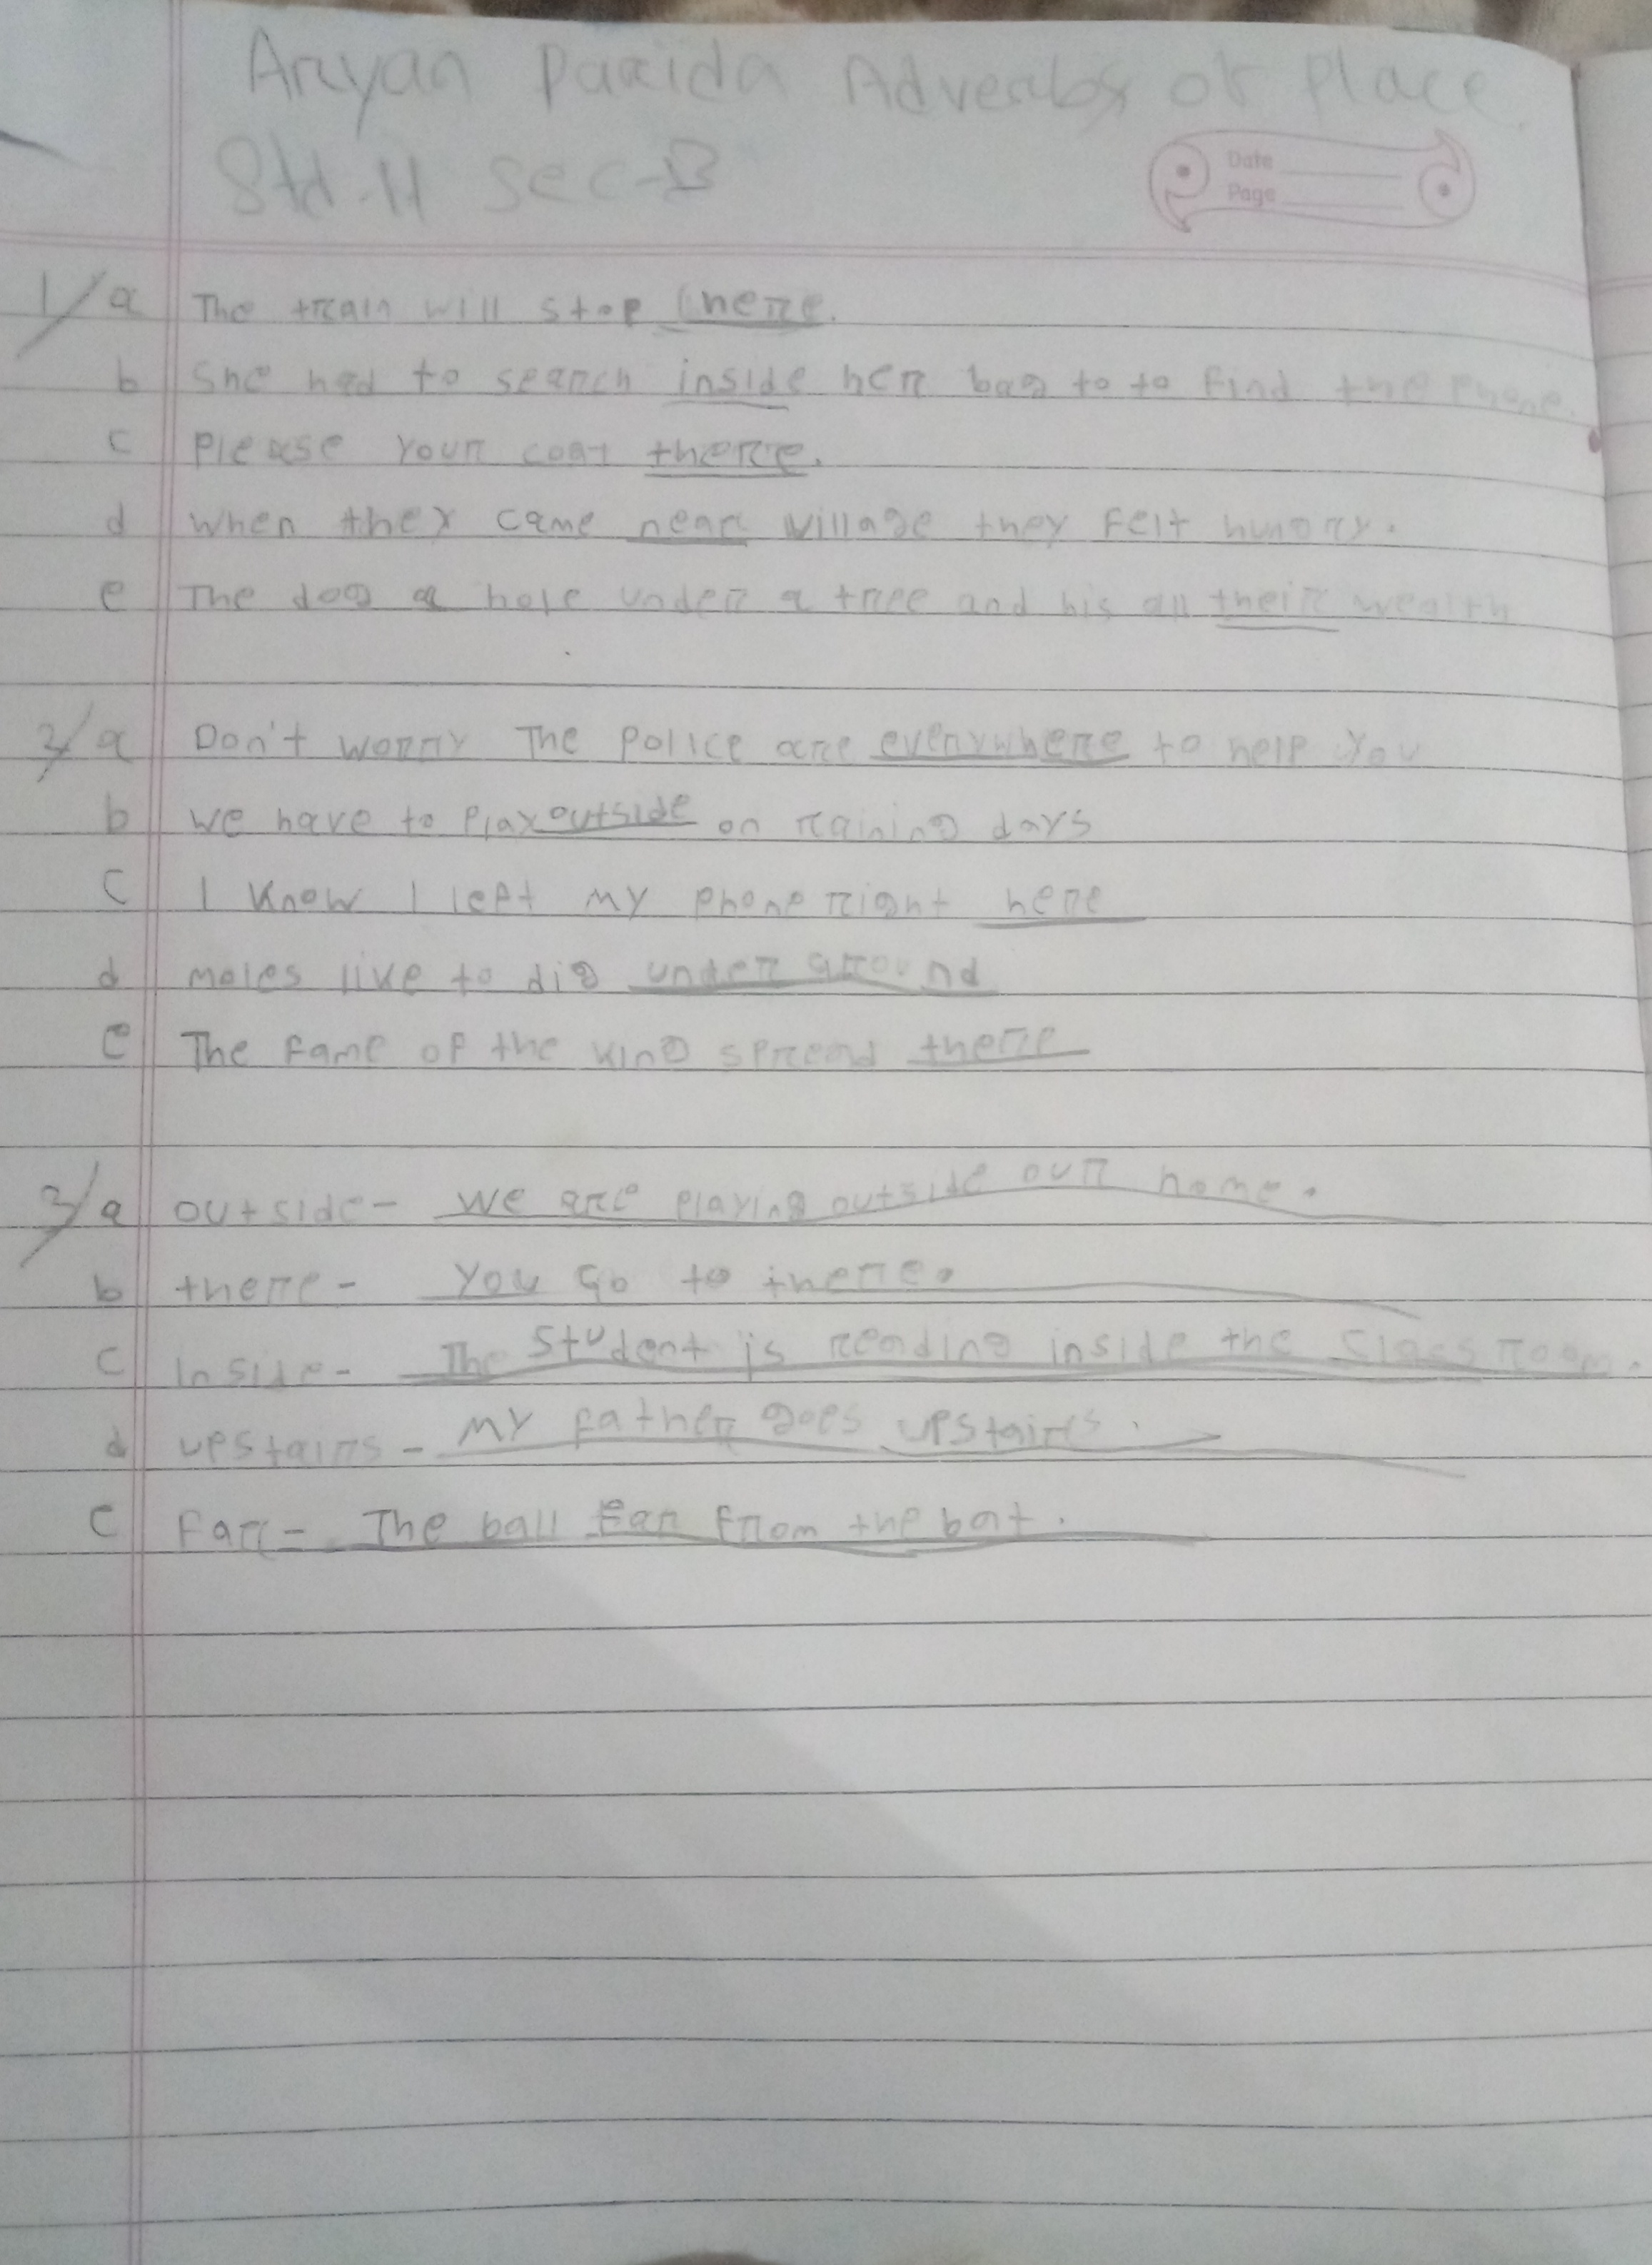 Aryan Parida Adverbs of Place
Std-II Sec-B
Date
Page
1/ a The train will stop here.
b She had to search inside her bag to to find the phone.
c Please your coat there.
d When they came near village they felt hungry.
e The dog a hole under a tree and his all their wealth
2/ a Don't worry The police are everywhere to help you
b we have to play outside on raining days
c I know I left my phone right here
d moles live to dig under ground
e The fame of the king spread there
3/ a outside - we are playing outside our home.
b there - you go to there.
c Inside - The student is reading inside the classroom.
d upstairs - my father goes upstairs.
e Far - The ball far from the bat.